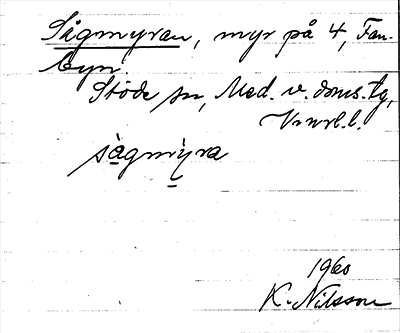 Sågmyran, myr på 4, Fan-
byn.
Stöde sn, Med. v. doms. tg,
Vnrl.l.
sågmýra
1960
K. Nilsson